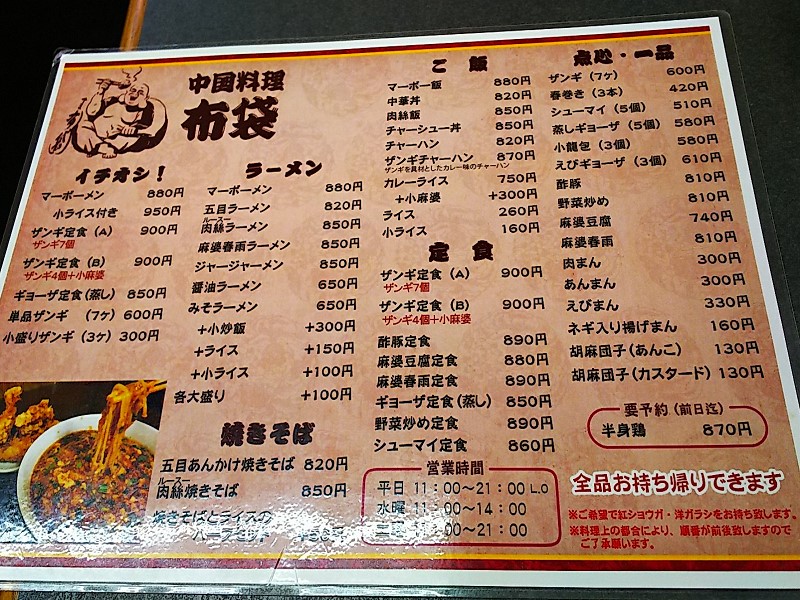 中国料理
布袋
イチオシ！
マーボーメン 880円
小ライス付き 950円
ザンギ定食（A） 900円
ザンギ7個
ザンギ定食（B） 900円
ザンギ4個＋小麻婆
ギョーザ定食（蒸し） 850円
単品ザンギ （7ケ） 600円
小盛りザンギ（3ケ） 300円
ラーメン
マーボーメン 880円
五目ラーメン 820円
ルースー
肉絲ラーメン 850円
麻婆春雨ラーメン 850円
ジャージャーメン 850円
醤油ラーメン 650円
みそラーメン 650円
＋小炒飯 +300円
＋ライス +150円
＋小ライス +100円
各大盛り +100円
焼きそば
五目あんかけ焼きそば 820円
ルースー
肉絲焼きそば 850円
焼きそばとライスの
ご飯
マーボー飯 880円
中華丼 820円
肉絲飯 850円
チャーシュー丼 850円
チャーハン 820円
ザンギチャーハン 870円
ザンギを具材としたカレー味のチャーハン
カレーライス 750円
＋小麻婆 +300円
ライス 260円
小ライス 160円
定食
ザンギ定食（A） 900円
ザンギ7個
ザンギ定食（B） 900円
ザンギ4個＋小麻婆
酢豚定食 890円
麻婆豆腐定食 880円
麻婆春雨定食 890円
ギョーザ定食（蒸し） 850円
野菜炒め定食 890円
シューマイ定食 860円
営業時間
平日 11：00〜21：00 L.O
水曜 11：00〜14：00
11：00〜21：00
点心・一品
ザンギ（7ケ） 600円
春巻き（3本） 420円
シューマイ（5個） 510円
蒸しギョーザ（5個） 580円
小龍包（3個） 580円
えびギョーザ（3個） 610円
酢豚 810円
野菜炒め 810円
麻婆豆腐 740円
麻婆春雨 810円
肉まん 300円
あんまん 300円
えびまん 330円
ネギ入り揚げまん 160円
胡麻団子（あんこ） 130円
胡麻団子（カスタード） 130円
要予約（前日迄）
半身鶏 870円
全品お持ち帰りできます
※ご希望で紅ショウガ・洋ガラシをお持ち致します。
※料理上の都合により、順番が前後致しますので
ご了承願います。